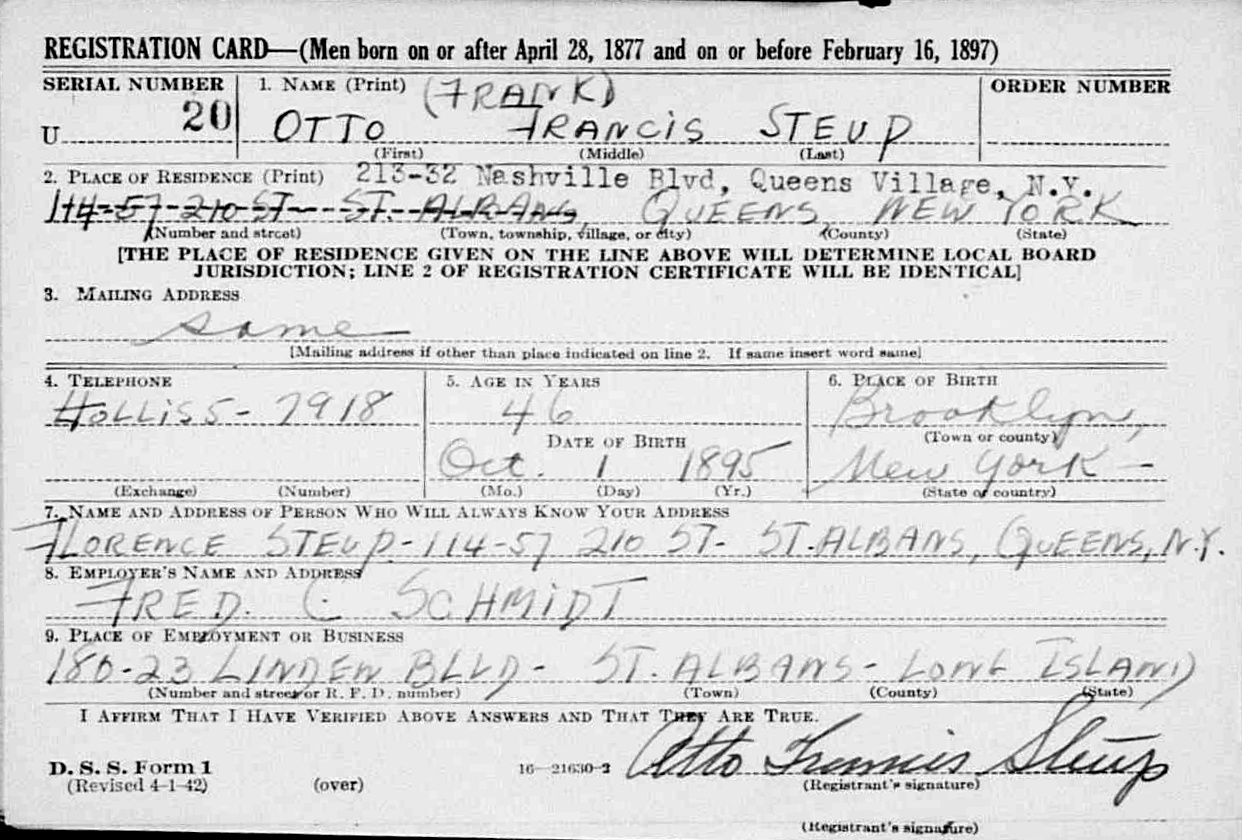 REGISTRATION CARD—(Men born on or after April 28, 1877 and on or before February 16, 1897)
SERIAL NUMBER 1. NAME (Print) (FRANK) ORDER NUMBER
U 20 OTTO FRANCIS STEUP
(First) (Middle) (Last)
2. PLACE OF RESIDENCE (Print) 213-32 Nashville Blvd, Queens Village, N.Y.
114-57-210 ST- ST. ALBANS, QUEENS NEW YORK
(Number and street) (Town, township, village, or city) (County) (State)
[THE PLACE OF RESIDENCE GIVEN ON THE LINE ABOVE WILL DETERMINE LOCAL BOARD
JURISDICTION; LINE 2 OF REGISTRATION CERTIFICATE WILL BE IDENTICAL]
3. MAILING ADDRESS
same
[Mailing address if other than place indicated on line 2. If same insert word same]
4. TELEPHONE 5. AGE IN YEARS 6. PLACE OF BIRTH
HOLLIS 5- 7918 46 Brooklyn,
DATE OF BIRTH (Town or county)
Oct. 1 1895 New York -
(Exchange) (Number) (Mo.) (Day) (Yr.) (State or country)
7. NAME AND ADDRESS OF PERSON WHO WILL ALWAYS KNOW YOUR ADDRESS
FLORENCE STEUP-114-57 210 ST- ST. ALBANS, QUEENS, N.Y.
8. EMPLOYER'S NAME AND ADDRESS
FRED. C SCHMIDT
9. PLACE OF EMPLOYMENT OR BUSINESS
180-23 LINDEN BLVD- ST. ALBANS- LONG ISLAND
(Number and street or R. F. D. number) (Town) (County) (State)
I AFFIRM THAT I HAVE VERIFIED ABOVE ANSWERS AND THAT THEY ARE TRUE.
Otto Francis Steup
D. S. S. Form 1 16—21630-2
(Revised 4-1-42) (over) (Registrant's signature)
(Registrant's signature)